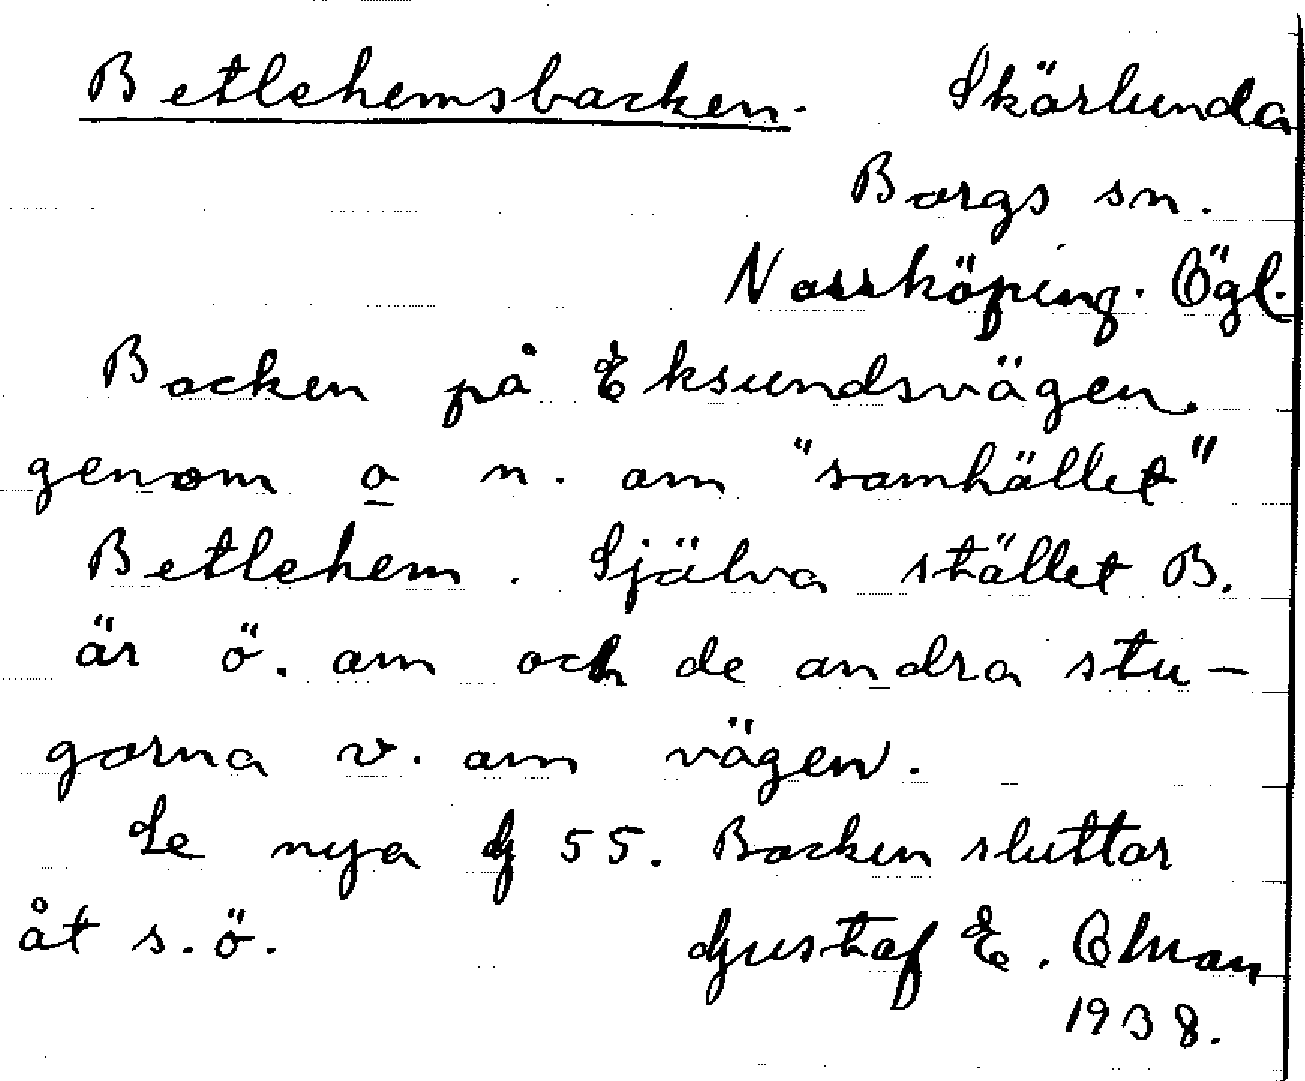 Betlehemsbacken. Skärlunda
Borgs sn.
Norrköping. Ögl.
Backen på Eksundsvägen
genom o n. om "samhället"
Betlehem. Själva stället B.
är ö. om och de andra stu-
gorna v. om vägen.
Se nya G 55. Backen sluttar
åt s.ö. Gustaf E.
1938.